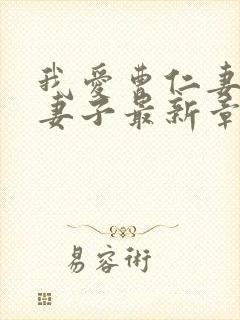 我爱曹仁妻
妻子最新章
易容術